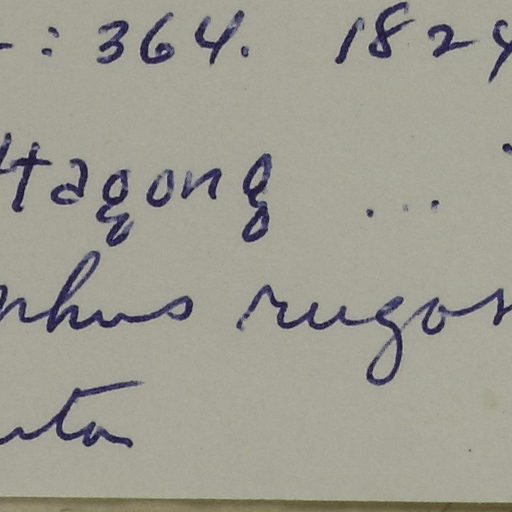 : 364. 1824
ttagong ...
phus rugos